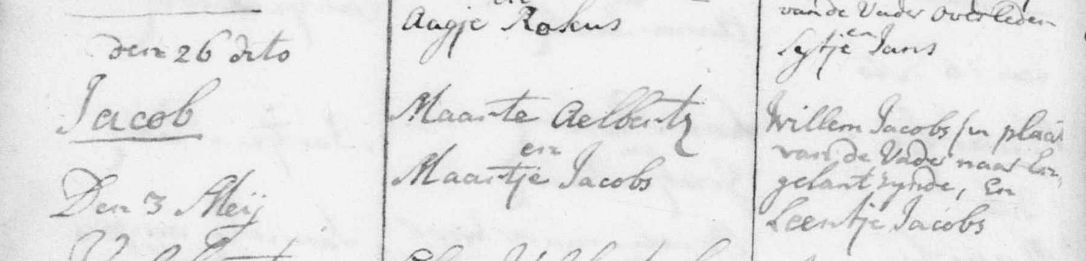 Aagje Rokus
van de Vader overleden
en
Sytje Jans
den 26 dito
Jacob
Maarte Aelbertz
en
Maartje Jacobs
Willem Jacobs in plaat
van de Vade naar En,
gelant zynde, En
Leentje Jacobs
Den 3 Meij